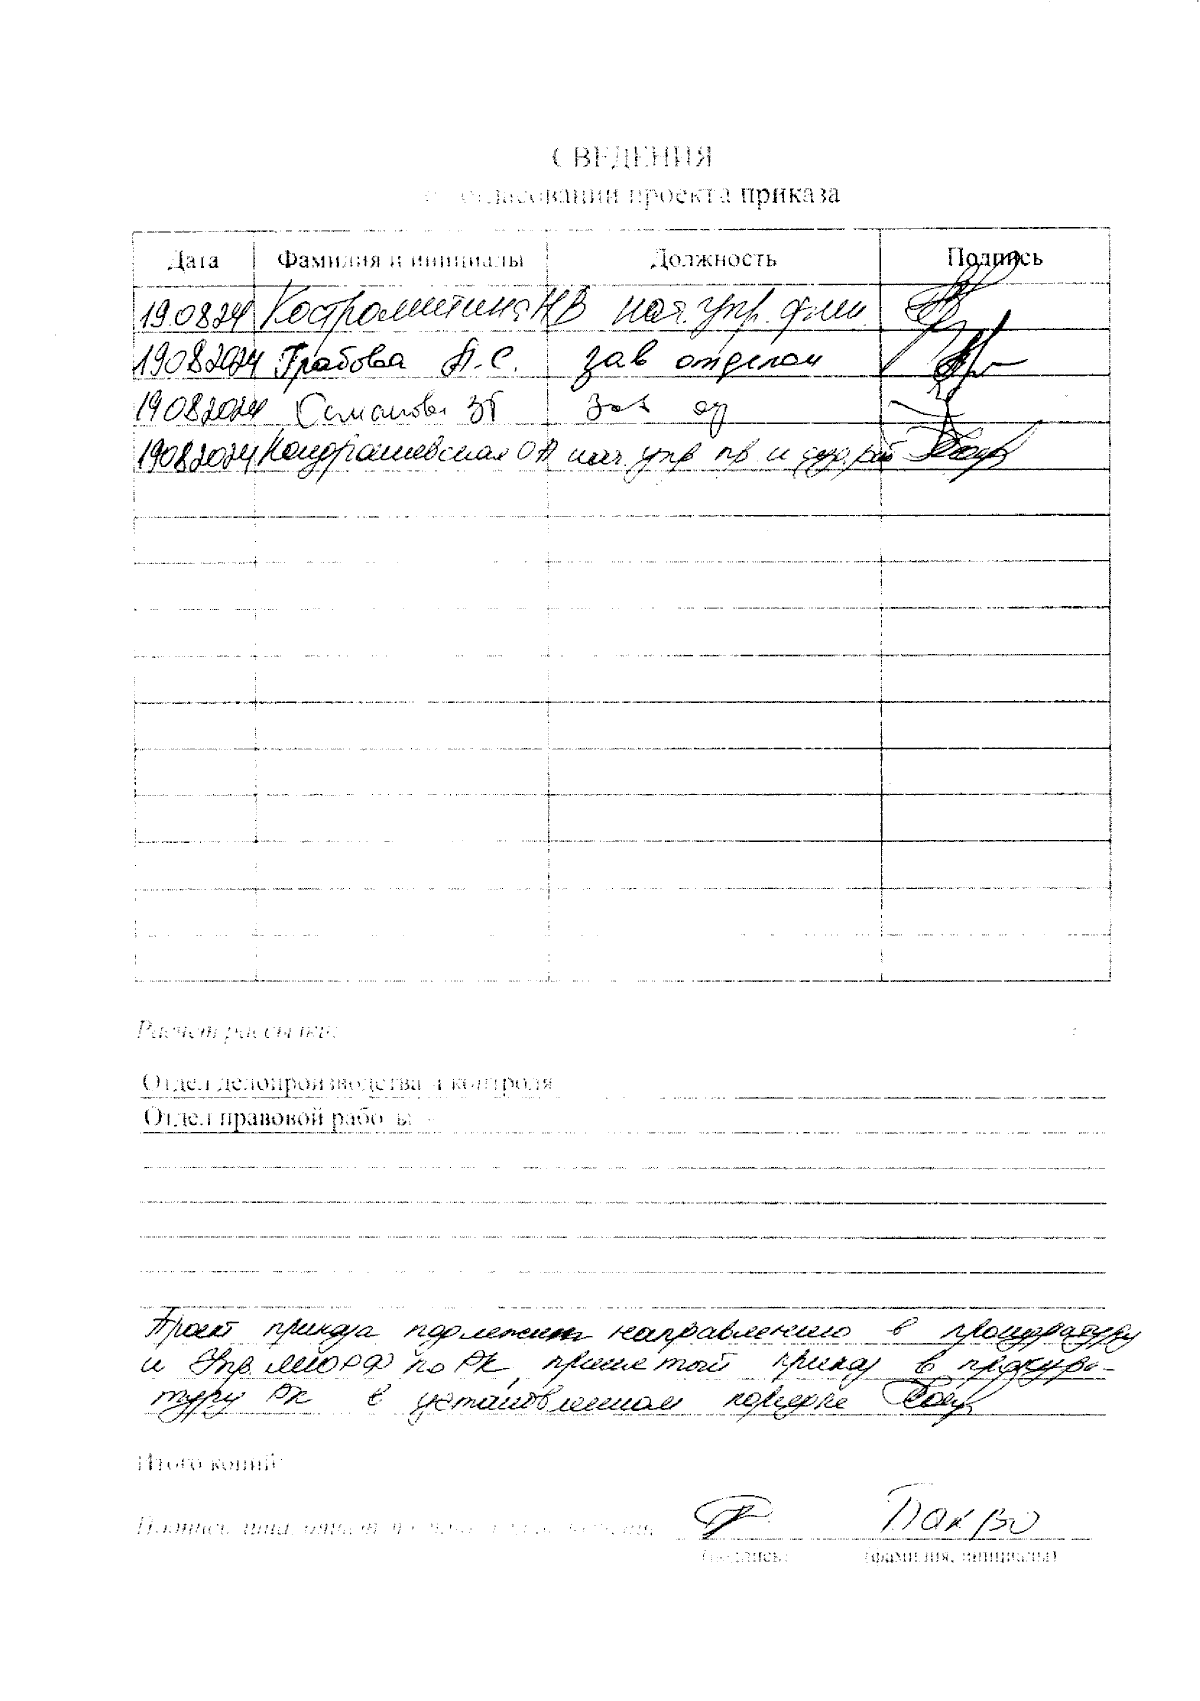 СВЕДЕНИЯ
о согласовании проекта приказа
Дата Фамилия и инициалы Должность Подпись
19.08.24 Костромитина НВ нач. упр. фми
19.08.2024 Грабова А.С. зав отделом
19082024 Саманова ЗГ Зав
19.08.2024 Кондрашевская ОА нач. упр пв и
Расчет рассылки:
Отдел делопроизводства и контроля
Отдел правовой работы
Проект приказа подлежит направлению в прокуратуру
и Упр. МЮ РФ по РК, принятый приказ в прокура-
туру РК в установленном порядке
Итого копий:
Подпись лица,
Пак ВО
(подпись) (фамилия, инициалы)